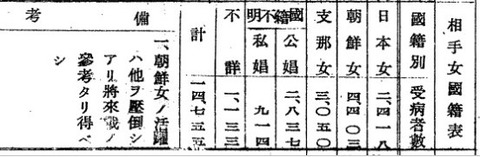 相手女國籍表
國籍別 受病者數
日本女 二、四一八
朝鮮女 四、四〇三
支那女 三、〇五〇
國籍不明
公娼 二、八三七
私娼 九一四
不詳 一、一三三
計 一四、七五五
備考
一、朝鮮女ノ活躍
ハ他ヲ壓倒シ
アリ將來戰ノ
參考タリ得ベ
シ